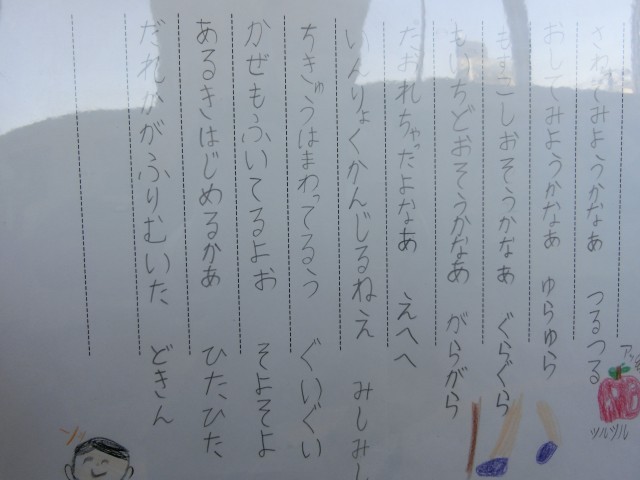 さわってみようかなあ　つるつる
おしてみようかなあ　ゆらゆら
もすこしおそうかなあ　ぐらぐら
もいちどおそうかなあ　がらがら
たおれちゃったよなあ　えへへ
いんりょくかんじるねえ　みしみし
ちきゅうはまわってるう　ぐいぐい
かぜもふいてるよお　そよそよ
あるきはじめるかあ　ひたひた
だれかがふりむいた　どきん
ツルツル